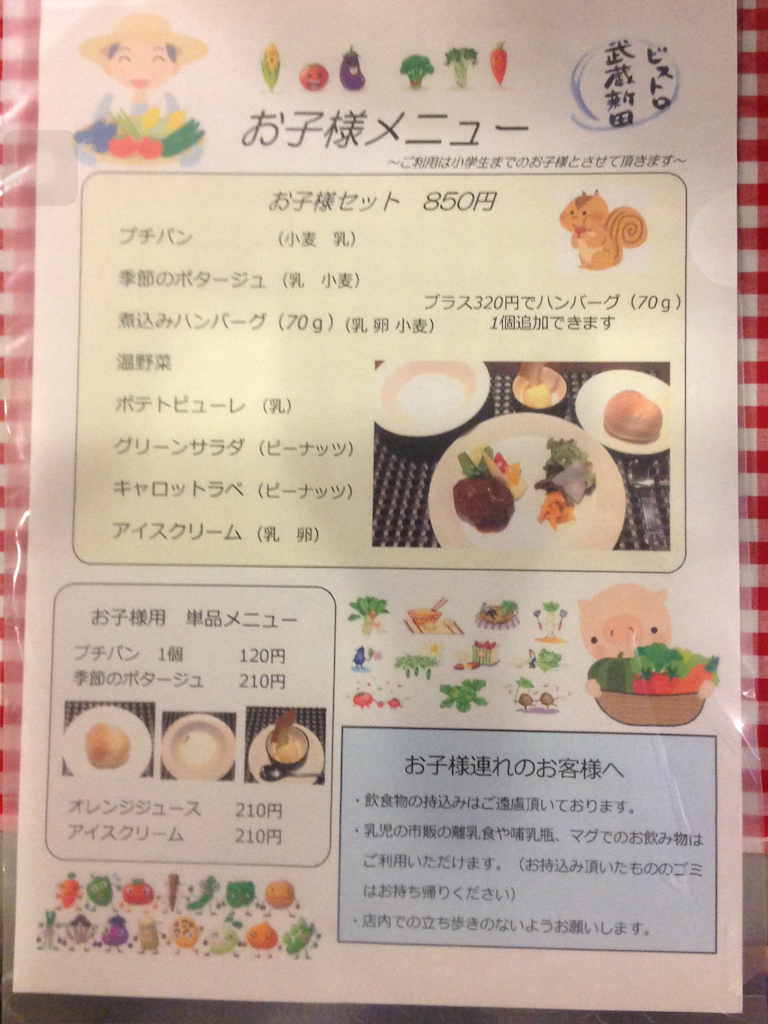 ビストロ
武蔵新田
お子様メニュー
～ご利用は小学生までのお子様とさせて頂きます～
お子様セット 850円
プチパン (小麦 乳)
季節のポタージュ (乳 小麦)
煮込みハンバーグ (70g) (乳 卵 小麦)
プラス320円でハンバーグ (70g)
1個追加できます
温野菜
ポテトピューレ (乳)
グリーンサラダ (ピーナッツ)
キャロットラペ (ピーナッツ)
アイスクリーム (乳 卵)
お子様用 単品メニュー
プチパン 1個 120円
季節のポタージュ 210円
オレンジジュース 210円
アイスクリーム 210円
お子様連れのお客様へ
・飲食物の持込みはご遠慮頂いております。
・乳児の市販の離乳食や哺乳瓶、マグでのお飲み物は
ご利用いただけます。(お持込み頂いたもののゴミ
はお持ち帰りください)
・店内での立ち歩きのないようお願いします。